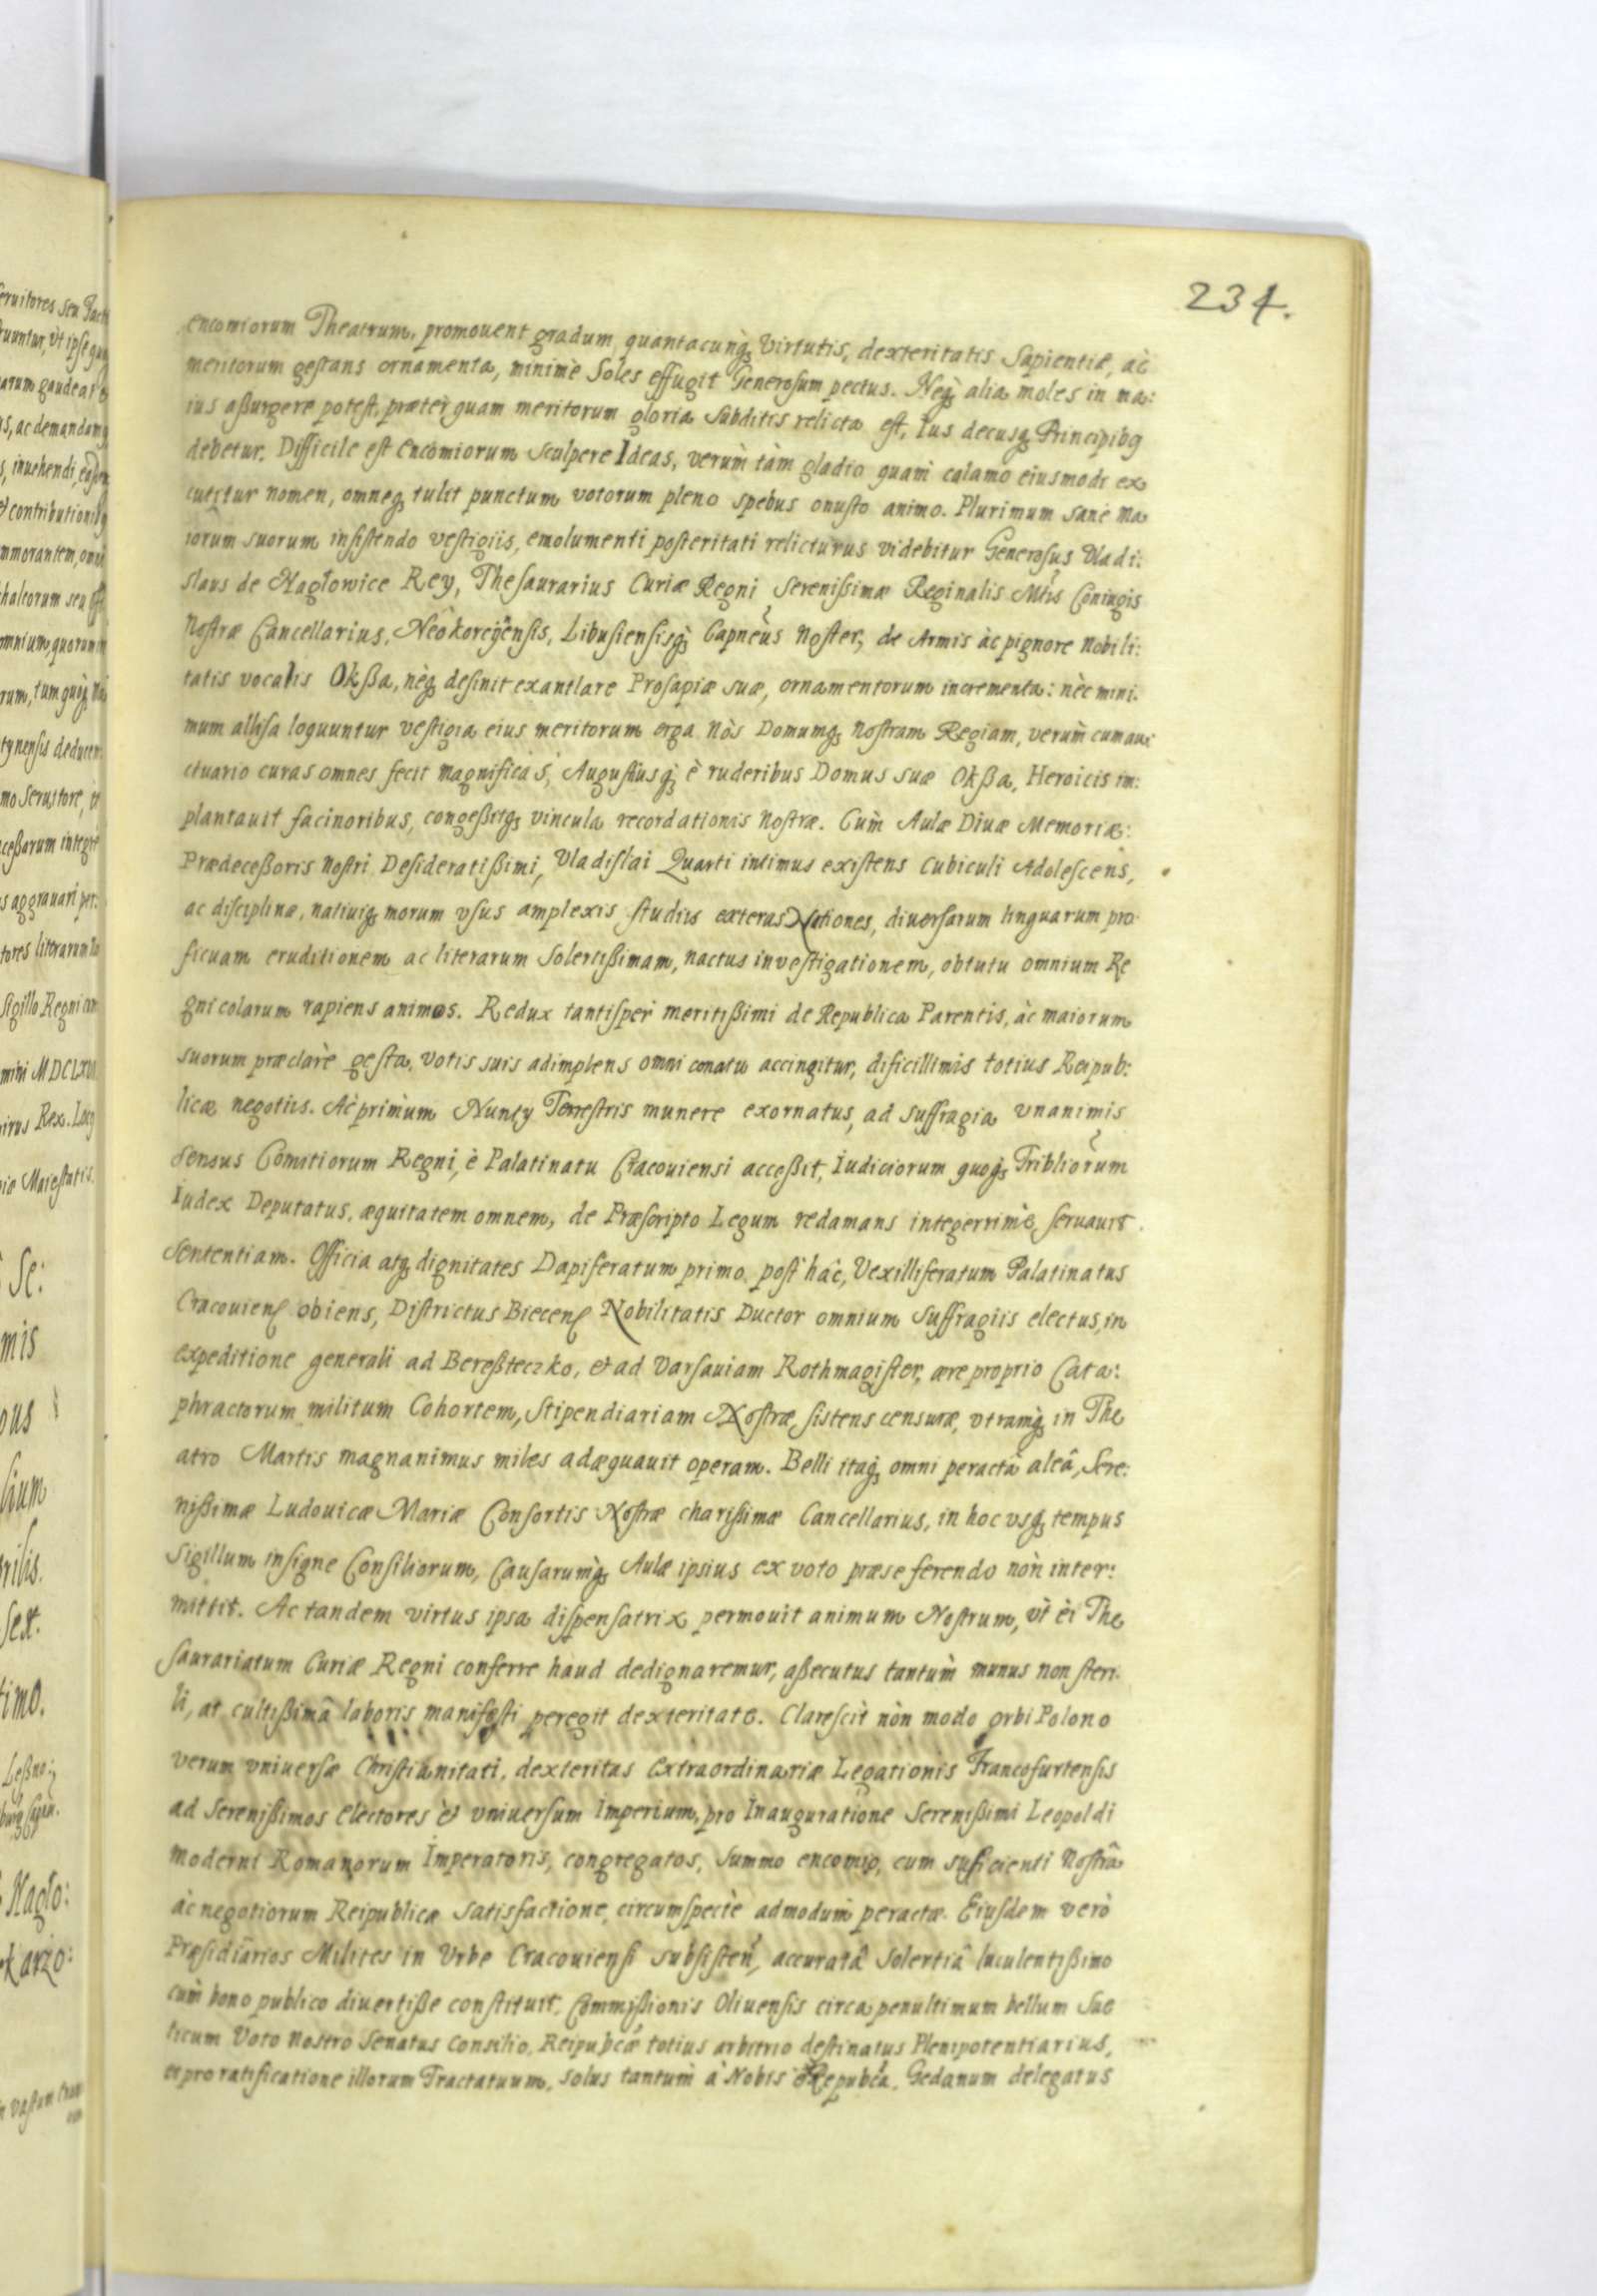 234.
encomiorum Theatrum, promouent gradum, quantacunq; virtutis, dexteritatis Sapientiæ, àc
meritorum gestans ornamenta, minimè Soles effugit Generosum pectus. Neq; alia moles in ma:
ius aßurgere potest, præter quam meritorum gloria subditis relicta est, Ius decusq; Principibq
debetur. Difficile est encomiorum sculpere Ideas, verùm tàm gladio quam calamo eiusmodi ex
cutitur nomen, omneq; tulit punctum votorum pleno spebus onusto animo. Plurimum sanè ma
iorum suorum insistendo vestigiis, emolumenti posteritati relicturus videbitur Generosus Vladi:
slaus de Nagłowice Rey, Thesaurarius Curiæ Regni Serenissimæ Reginalis Mtis Coniugis
Nostræ Cancellarius, Neokorcÿensis, Libusiensisq; Capneus Noster, de Armis àc pignore Nobili:
tatis vocalis Okßa, nèq; desinit exantlare Prosapiæ suæ, ornamentorum incrementa: nèc mini.
mum allisa loquuntur vestigia eius meritorum erga Nòs Domumq; Nostram Regiam, verùm cum au
ctuario curas omnes fecit magnificas, Augustiusq; è ruderibus Domus suæ Okßa, Heroicis im:
plantauit facinoribus, congeßitq; vincula recordationis Nostræ. Cùm Aulæ Diuæ Memoriæ:
Prædeceßoris Nostri Desideratißimi, Vladislai Quarti intimus existens Cubiculi Adolescens,
ac disciplinæ, natiuiq; morum vsus amplexis studiis exteras Nationes, diuersarum linguarum pro
ficuam eruditionem ac literarum Solertißimam, nactus inuestigationem, obtutu omnium Re
gnicolarum rapiens animos. Redux tantisper meritißimi de Republica Parentis, àc maiorum
suorum præclarè gesta, votis suis adimplens omni conatu accingitur, dificillimis totius Reipub:
licæ negotiis. Ac primùm Nuncy Terrestris munere exornatus, ad suffragia vnanimis
sensus Comitiorum Regni, è Palatinatu Cracouiensi acceßit, Iudiciorum quoq; Tribliorum
Iudex Deputatus, æquitatem omnem, de Præscripto Legum redamans integerrimè, seruauit
Sententiam. Officia atq; dignitates Dapiferatum primo, post hac, Vexilliferatum Palatinatus
Cracouiens obiens, Districtus Biecens Nobilitatis Ductor omnium suffragiis electus, in
expeditione generali ad Bereßteczko, et ad Varsauiam Rothmagister, ære proprio Cata:
phractorum militum Cohortem, Stipendiariam Nostræ, sistens censuræ, vtramq; in The
atro Martis magnanimus miles adæquauit operam. Belli itaq; omni peractâ aleâ, Sere:
nißimæ Ludouicæ Mariæ Consortis Nostræ charißimæ Cancellarius, in hoc vsq; tempus
Sigillum insigne Consiliorum, Causarumq; Aulæ ipsius ex voto præseferendo nòn inter:
mittit. Ac tandem virtus ipsa dispensatrix permouit animum Nostrum, vt èi The
saurariatum Curiæ Regni conferre haud dedignaremur, aßecutus tantùm munus non steri.
li, at cultißimâ laboris manifesti peregit dexteritate. Clarescit nòn modo orbi Polono
verum vniuersæ Christianitati, dexteritas extraordinariæ Legationis Francofurtensis
ad Serenißimos Electores et vniuersum Imperium, pro Inauguratione Serenißimi Leopoldi
moderni Romanorum Imperatoris, congregatos, summo encomio, cum suficienti Nostrâ
àc negotiorum Reipublicæ satisfactione, circumspectè admodùm peractæ. Eiusdem verò
Præsidiarios Milites in Vrbe Cracouiensi subsisten, accuratâ Solertiâ luculentißimo
cùm bono publico diuertiße constituit, Commißionis Oliuensis circa penultimum bellum Sue
ticum Voto Nostro Senatus Consilio, Reipubcæ totius arbitrio destinatus Plenipotentiarius,
et pro ratificatione illorum Tractatuum, solus tantùm à Nobis Repubca, Gedanum delegatus